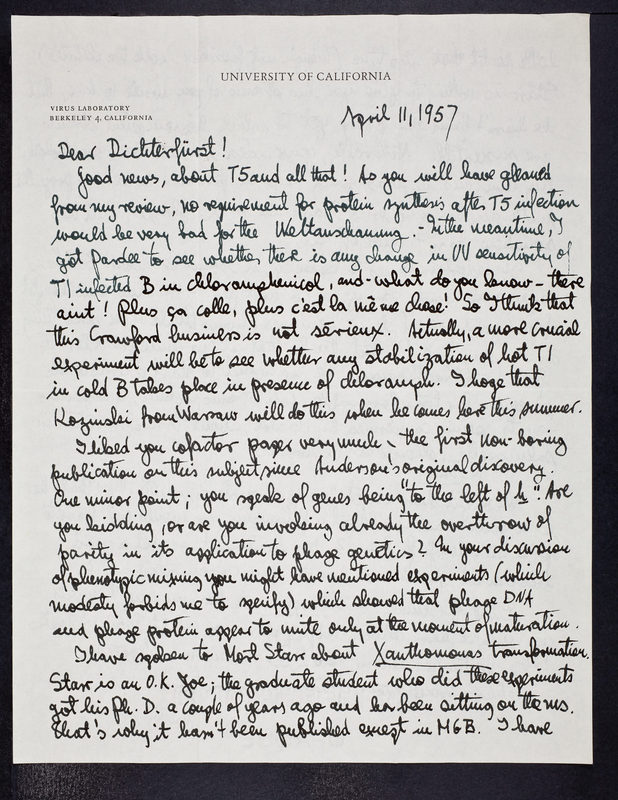 UNIVERSITY OF CALIFORNIA
VIRUS LABORATORY
BERKELEY 4, CALIFORNIA
April 11, 1957
Dear Dichterfürst!
Good news, about T5 and all that! As you will have gleaned
from my review, no requirement for protein synthesis after T5 infection
would be very bad for the Weltanschauung. - In the meantime, I
got Pardee to see whether there is any change in UV sensitivity of
T1 infected B in chloramphenicol, and - what do you know - there
aint! Plus ça colle, plus c'est la même chose! So I think that
this Crawford business is not sérieux. Actually, a more crucial
experiment will be to see whether any stabilization of hot T1
in cold B takes place in presence of chloramph. I hope that
Kozinski from Warsaw will do this when he comes here this summer.
I liked you cofactor paper very much, the first non-boring
publication on this subject since Anderson's original discovery.
One minor point; you speak of genes being "to the left of h". Are
you kidding, or are you invoking already the overthrow of
parity in its application to phage genetics? In your discussion
of phenotypic mixing you might have mentioned experiments (which
modesty forbids me to specify) which showed that phage DNA
and phage protein appear to unite only at the moment of maturation.
I have spoken to Mort Starr about Xanthomonas transformation.
Starr is an O.K. Joe; the graduate student who did these experiments
got his Ph. D. a couple of years ago and has been sitting on the ms.
That's why it hasn't been published except in MGB. I have